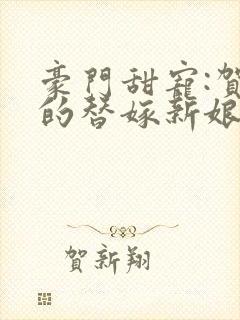 豪門甜寵:賀
的替嫁新娘
賀新翔